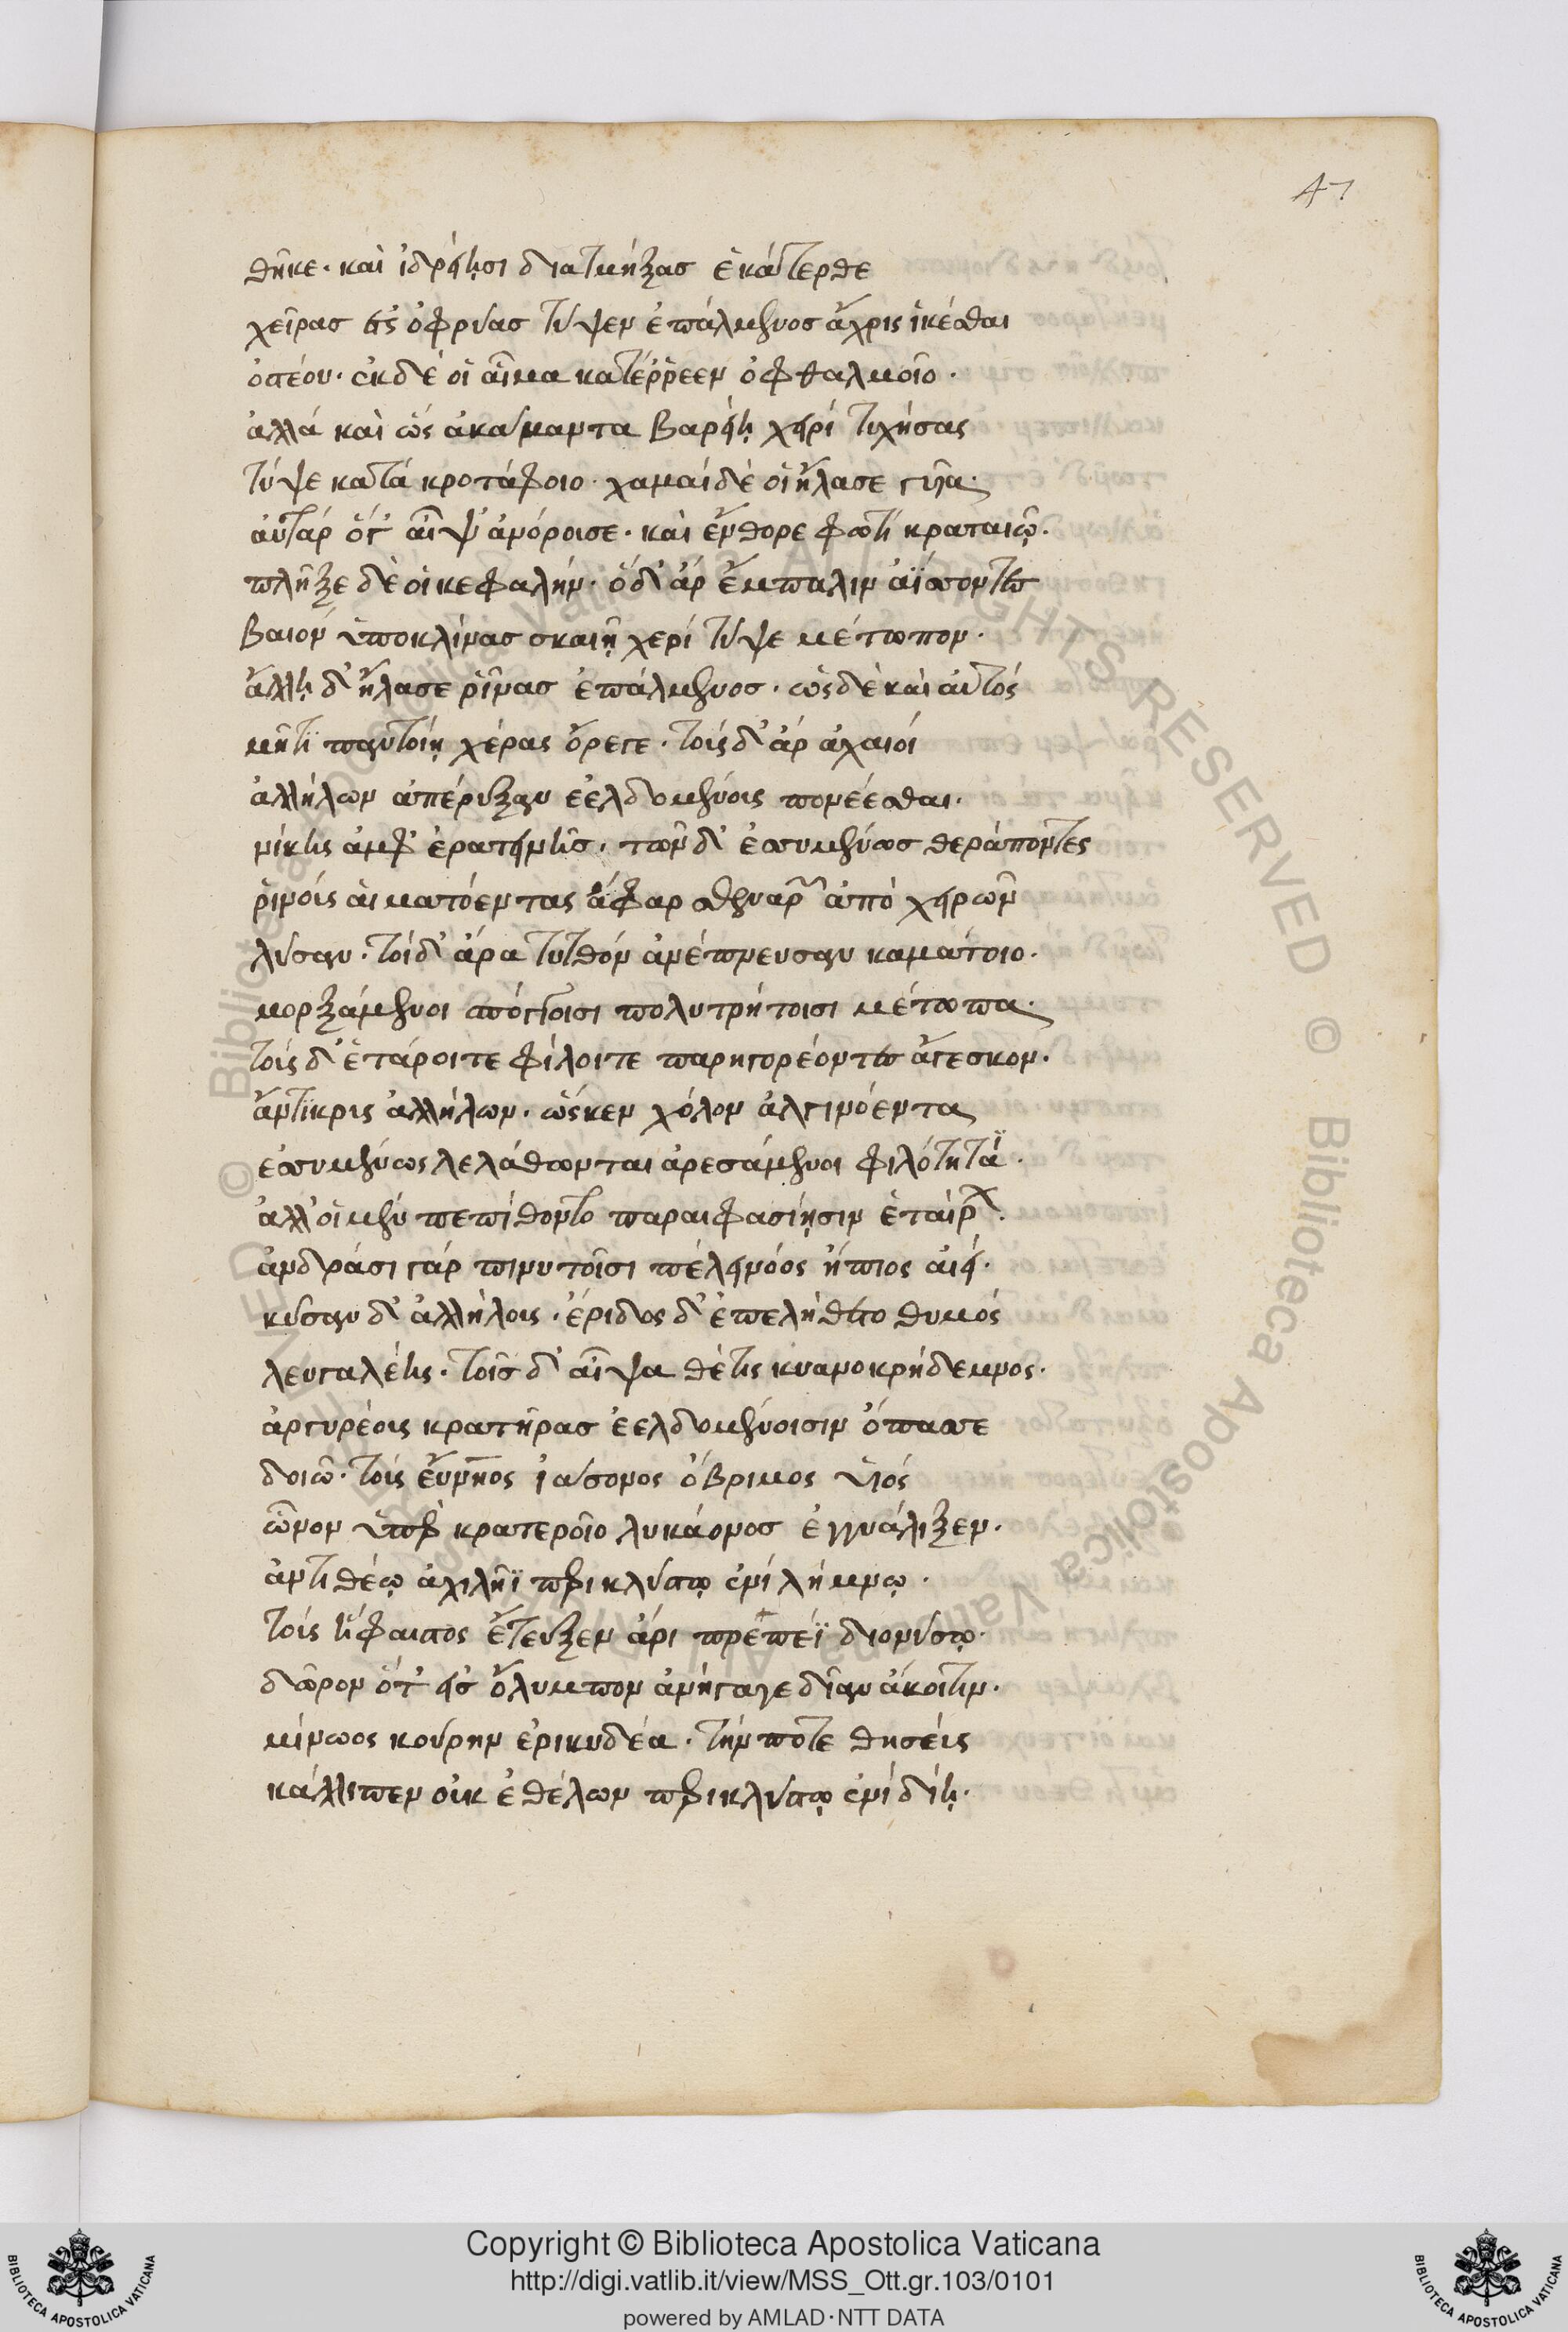 47
θῆκε· καὶ ἱδρείησι διατμήξας ἑκάτερθε
χεῖρας ἐς ὀφρύας τύψεν ἐπάλμενος ἄχρις ἱκέσθαι
ὀστέον· ἐκ δέ οἱ αἷμα κατέρρεεν ὀφθαλμοῖο·
ἀλλά καὶ ὥς ἀκάμαντα βαρείη χειρί τυχήσας
τύψε κατά κροτάφοιο· χαμαί δέ οἱ ἤλασε γυῖα·
αὐτάρ ὅγ' αἶψ' ἀνόροισε· καὶ ἔνθορε φωτί κραταιῷ·
πλῆξε δέ οἱ κεφαλήν· ὁ δ' ἄρ ἔμπαλιν ἀΐσσοντος
βαιόν ὑποκλίνας σκαιῇ χερί τύψε μέτωπον·
ἄλλη δ' ἤλασε ῥῖνας ἐπάλμενος· ὡς δὲ καὶ αὐτός
μήτι παντοίῃ χέρας ὄρεγε· τοίς δ' ἄρ ἀχαιοί
ἀλλήλων ἀπέρυξαν ἐελδομένοις πονέεσθαι·
νίκης ἀμφ' ἐρατεινῆς· τῶν δ' ἐσσυμένως θεράποντες
ῥινοίς αἱματόεντας ἄφαρ σθεναρῶν ἀπὸ χειρῶν
λύσαν· τοί δ' ἄρα τυτθόν ἀνέπνευσαν καμάτοιο·
μορξάμενοι σπόγγοισι πολυτρήτοισι μέτωπα·
τοίς δ' ἑτάροι τε φίλοι τε παρηγορέοντες ἄγεσκον·
ἄντικρις ἀλλήλων· ὥς κεν χόλον ἀλγινόεντα
ἐσσυμένως λελάθωνται ἀρεσάμενοι φιλότητι·
ἀλλ' οἱ μέν πεπίθοντο παραιφασίησιν ἑταίρων·
ἀνδράσι γάρ πινυτοῖσι πέλει νόος ἤπιος αἰεί·
κύσαν δ' ἀλλήλοις· ἔριδος δ' ἐπελήθετο θυμός
λευγαλέης· τοῖς δ' αἶψα θέτις κυανοκρήδεμνος·
ἀργυρέοις κρατῆρας ἐελδομένοισιν ὄπασσε
δοιῶ· τοίς εὔνηος ἰάσονος ὄβριμος υἱός
ὦνον ὑπὲρ κρατεροῖο λυκάονος ἐγγυάλιξεν·
ἀντιθέῳ ἀχιλῆϊ περικλύστῳ ἐνί λήμνῳ·
τοίς ἥφαιστος ἔτευξεν ἀρι πρεπέϊ διονύσῳ·
δῶρον ὅτ' εἰς ὄλυμπον ἀνήγαγε δῖαν ἄκοιτιν·
μίνωος κούρην ἐρικυδέα· τήν ποτε θησεύς
κάλλιπεν οὐκ ἐθέλων περικλύστῳ ἐνί δίη·
Copyright © Biblioteca Apostolica Vaticana
http://digi.vatlib.it/view/MSS_Ott.gr.103/0101
powered by AMLAD·NTT DATA